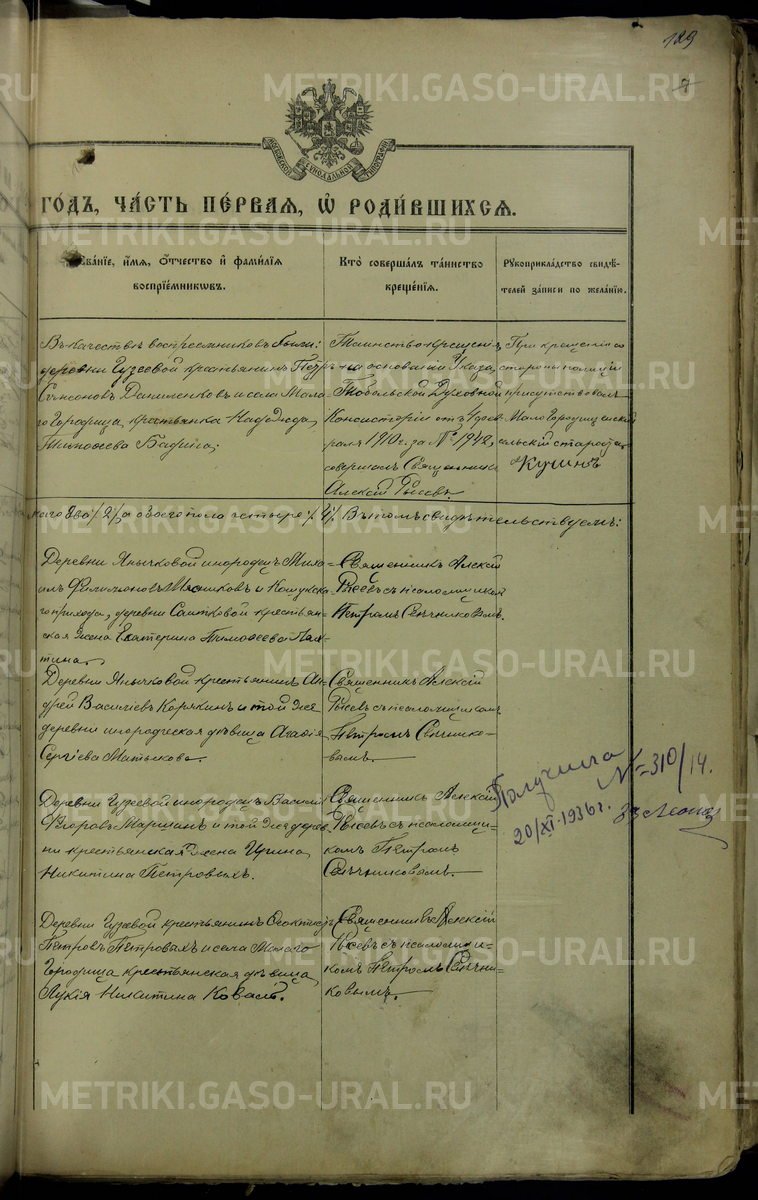 189
МОСКОВСКОЙ СѴНОДАЛЬНОЙ ТИПОГРАФІИ
ГОДЪ, ЧАСТЬ ПЕРВАЯ, Ѡ РОДИВШИХСЯ.
Званіе, имя, отчество и фамилія
воспріемниковъ.
Кто совершалъ таинство
крещенія.
Рукоприкладство свидѣ-
телей записи по желанію.
Въ качествѣ воспреемниковъ были:
деревни Гузеевой крестьянинъ Петръ
Даниленковъ и села Мала-
го Городища, крестьянка Надежда
Тимофеева
Таинство крещенія
на основаніи Указа
Тобольской Духовной
Консисторіи отъ 4 фев-
раля 1910 г. за № 1942,
совершалъ Священникъ
Алексій
При крещеніи со
стороны полиціи
присутствовалъ
Мало-Городищенскій
сельскій староста
Кугинъ
два /2/, а обоего пола четыре /4/. Въ томъ свидѣтельствуемъ:
Деревни Янычковой инородецъ Миха-
илъ Филимоновъ Мясниковъ и Кошукска-
го прихода, деревни Саитковой крестьян-
ская жена Екатерина Тимофеева Лах-
тина.
Священникъ Алексій
съ псаломщикомъ
Петромъ Свѣчниковымъ.
Деревни Янычковой крестьянинъ Ан-
дрей Васильевъ Корякинъ и той же
деревни инородческая дѣвица Агафія
Сергіева Матыскова.
Священникъ Алексій
съ псаломщикомъ
Петромъ Свѣчнико-
вымъ.
Деревни Гузеевой инородецъ Василій
Егоровъ Маршанъ и той же дерев-
ни крестьянская жена Ирина
Никитина Петровыхъ.
Священникъ Алексій
съ псаломщи-
комъ Петромъ
Свѣчниковымъ.
Получила № 310/14.
20/XI-1936 г.
Деревни Гузеевой крестьянинъ Феоктистъ
Петровъ Петровыхъ и села Малаго
Городища крестьянская дѣвица
Лукія Никитина Коваль.
Священникъ Алексій
съ псаломщи-
комъ Петромъ Свѣчни-
ковымъ.
METRIKI.GASO-URAL.RU